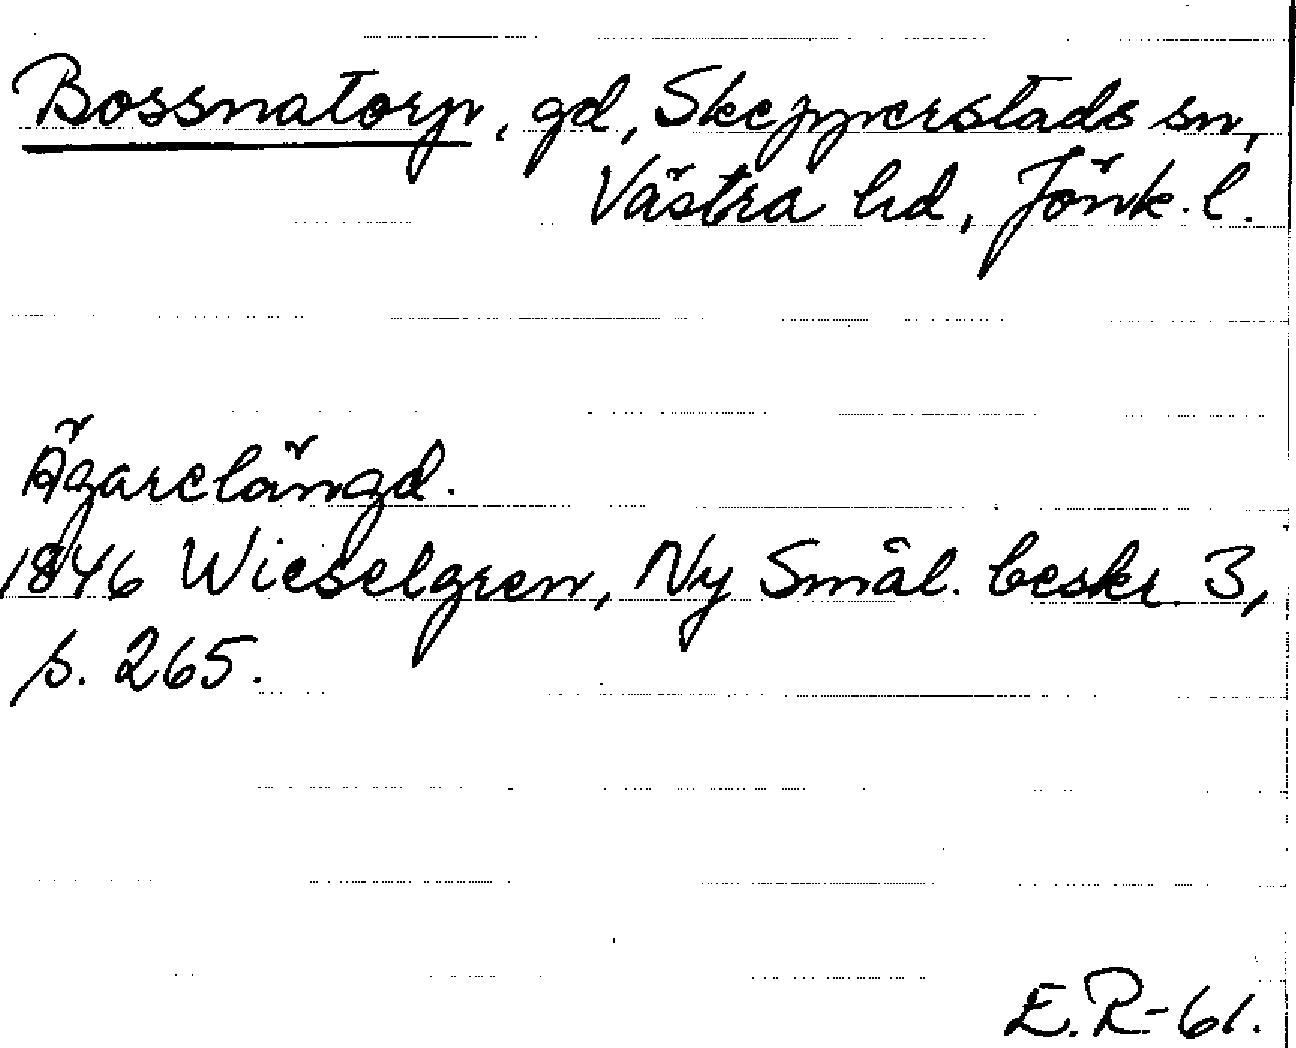 Bossmatorp, gd, Skepperstads sn,
Västra hd, Jönk. l.
Ägarelängd.
1846 Wieselgren, Ny Smål. beskr. 3,
s. 265.
E.R-61.